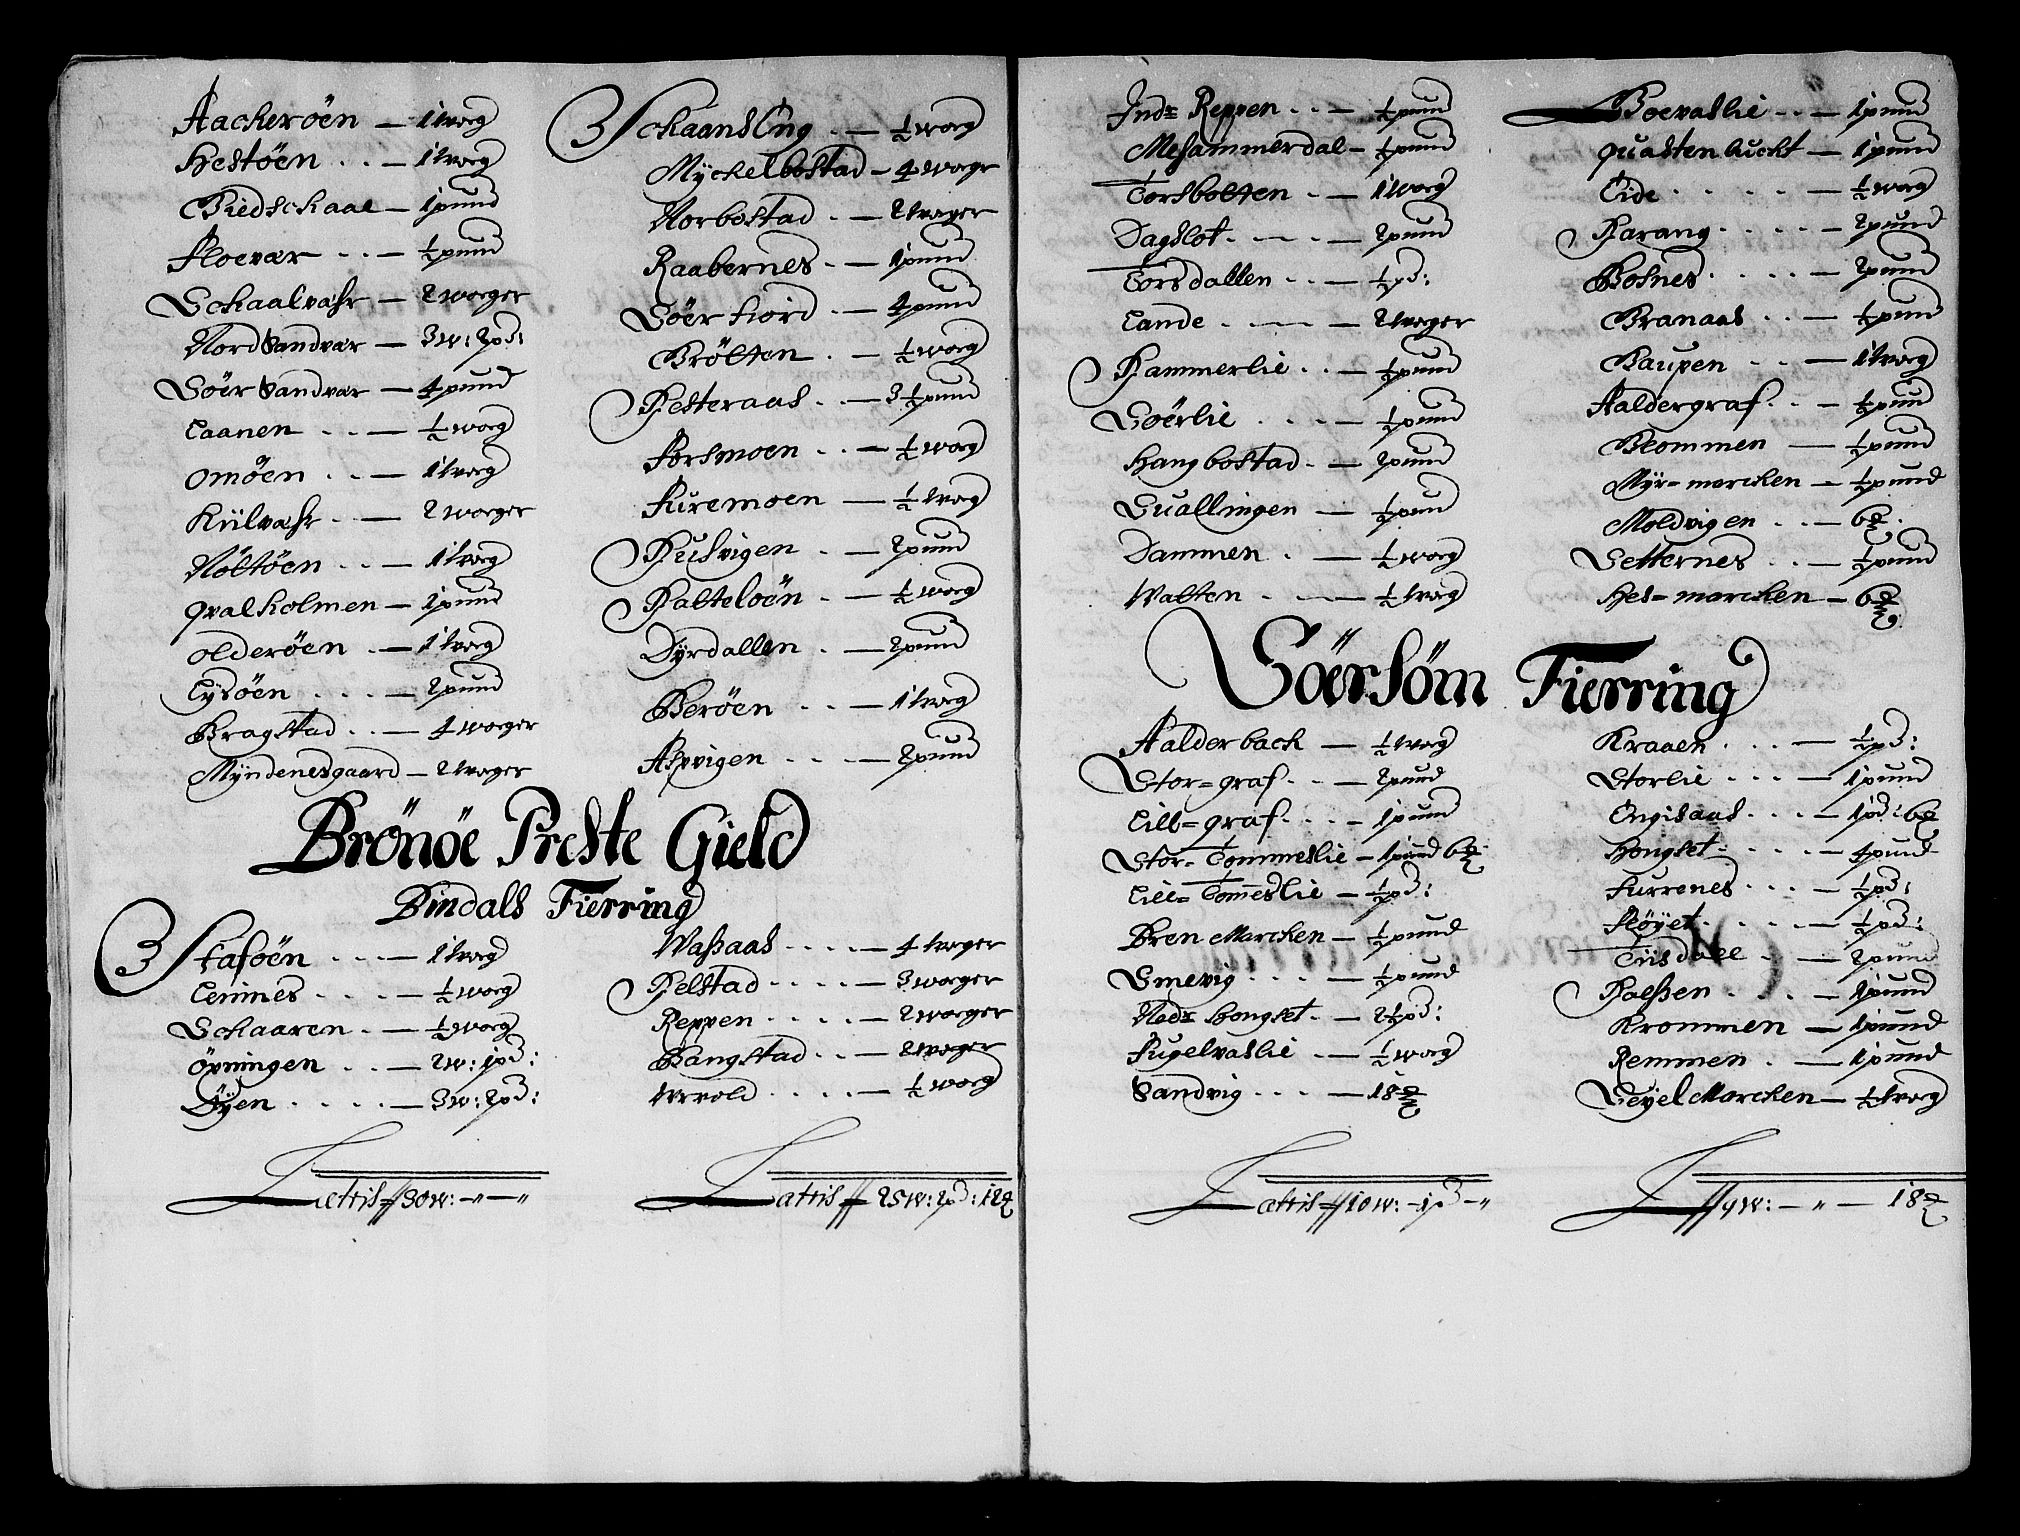 Aackerøen — 1 worg
Hestöen - - — 1 worg
Biedschaal — 1 pund
Floevær - - — ½ pund
Schaalvahr — 2 worger
Nord Sandvær — 3 w: 2 pd:
Söer Sandvær — 4 pund
Laanen - - — ½ worg
Omöen - - — 1 worg
Kiilvahr - - — 2 worger
Nöltöen - - — 1 worg
Qvalholmen — 1 pund
Olderöen - — 1 worg
Lysöen - - - — 2 pund
Bragstad - - — 4 worger
Myndenesgaard — 2 worger
Schaansling - — ½ worg
Mÿckelbostad — 4 worger
Norbostad - - — 2 worger
Raabernes - — 1 pund
Söer Fiord - — 4 pund
Brölten - — ½ worg
Hesteraas - - — 3½ pund
Forsmoen - - — ½ worg
Furemoen — ½ worg
Husvigen - — 2 pund
Halteloën - — ½ worg
Dÿrdallen - — 2 pund
Beröen - - — 1 worg
Aspvigen - - - — 2 pund
Brönöe Preste Gield
Bindals Fierring
Staföen - - - — 1 worg
Lennes - - - - — ½ worg
Schaaren - - — ½ worg
Øvningen - - - — 2 w: 1 pd:
Öÿen - - - - — 3 w: 2 pd:
Waßaas - - - - — 4 worger
Helstad - - - - — 3 worger
Reppen - - - - — 2 worger
Hangstad - - — 2 worger
Wrvold - - - - — ½ worg
Latris ff 30 w: —"—"
Latris ff 25 w: 2 pd: 12
Indr Reppen - - — ½ pund
Mesammerdal — ½ pund
Torsbotten - - — 1 worg
Dagslot - - - — 2 pund
Torsdallen - - — ½ pd:
Lande - — - — 2 worger
Hammerlie - - — ½ pund
Söerlie - - - — ½ pund
Hangbostad - — 2 pund
Suallingen — ½ pund
Dammen - — ½ worg
Walten - — - ½ worg
Boevaslie - - — 1 pund
Quastenlucht — 1 pund
Eide - - - - — ½ worg
Harang - - - - — 2 pund
Hosnes - - - - — 2 pund
Branaas - - — ½ pund
Haupen - - — 1 worg
Aaldergraf - - — ½ pund
Blommen — ½ pund
Myr=marcken — ½ pund
Moldvigen - - — 6
Setternes - - — ½ pund
Hel=marcken — 6
Söersöm Fierring
Aalderbach — ½ worg
Stor=graf - - — 2 pund
Lill=graf - - - — 1 pund
Stor=Tommeslie — 1 pund 6
Lill=Tomeslie — ½ pd:
Bren Marcken — ½ pund
Smevig - - - — ½ pund
Nedr Hongset - — 2½ pd:
Fugelvaslie - — ½ worg
Sandvig - - - — 18
Kraaen - - - — ½ pd:
Storlie - - - — 1 pund
Engisaas - - - — 1 pd: 6
Hongset - - - — 4 pund
Furrenes - - - — ½ pd:
Flöÿet - - - - — ½ pd:
Tiisdall - - — 2 pund
Haelhen - - - — 1 pund
Krommen — 1 pund
Remmen - — 1 pund
Seyel Marcken — ½ worg
Latris ff 10 w: — 1 pd — "
L ff 9 w: — " — 18